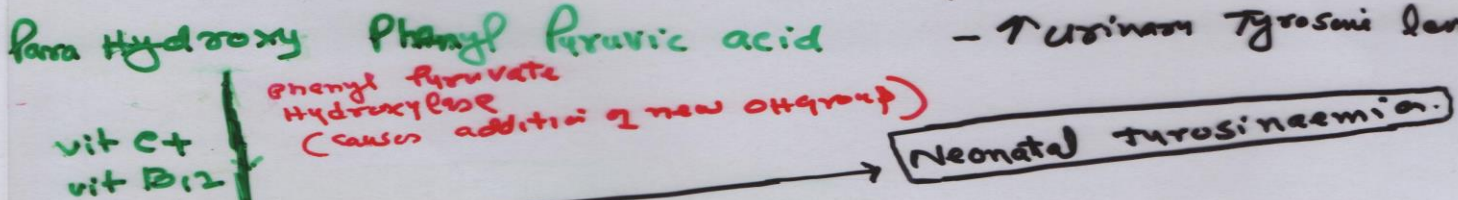 Para Hydroxy Phenyl Pyruvic acid
- ↑ urinary Tyrosine lev
Phenyl Pyruvate
Hydroxylase
(causes addition of new OH group)
vit C+
vit B12
Neonatal tyrosinaemia.